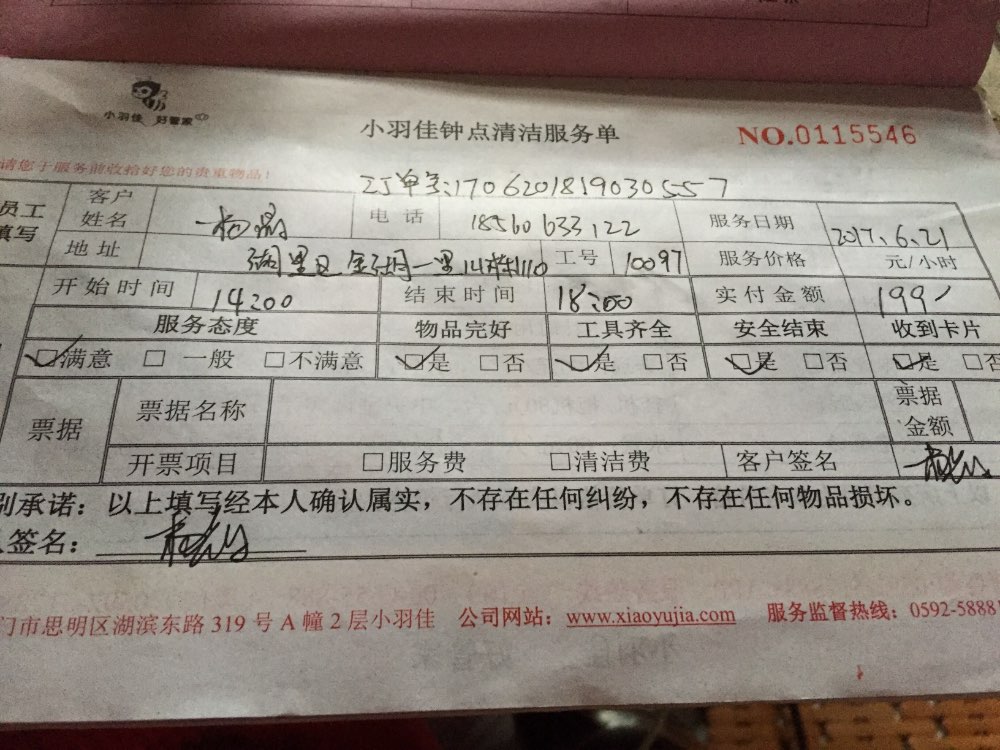 小羽佳 好管家
小羽佳钟点清洁服务单 NO.0115546
请您于服务前收拾好您的贵重物品！
订单号:170620181903055 57
员工填写 客户姓名 电话 18560633122 服务日期 2017.6.21
地址 湖里区金湖一里14栋110 工号 10097 服务价格 元/小时
开始时间 14:00 结束时间 18:00 实付金额 199
服务态度 物品完好 工具齐全 安全结束 收到卡片
满意 一般 不满意 是 否 是 否 是 否 是 否
票据 票据名称 票据金额
开票项目 服务费 清洁费 客户签名
别承诺：以上填写经本人确认属实，不存在任何纠纷，不存在任何物品损坏。
签名：
门市思明区湖滨东路319号A幢2层小羽佳 公司网站：www.xiaoyujia.com 服务监督热线：0592-58887